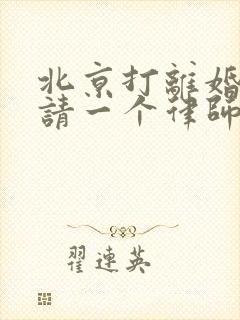 北京打離婚
請一个律師
翟連英